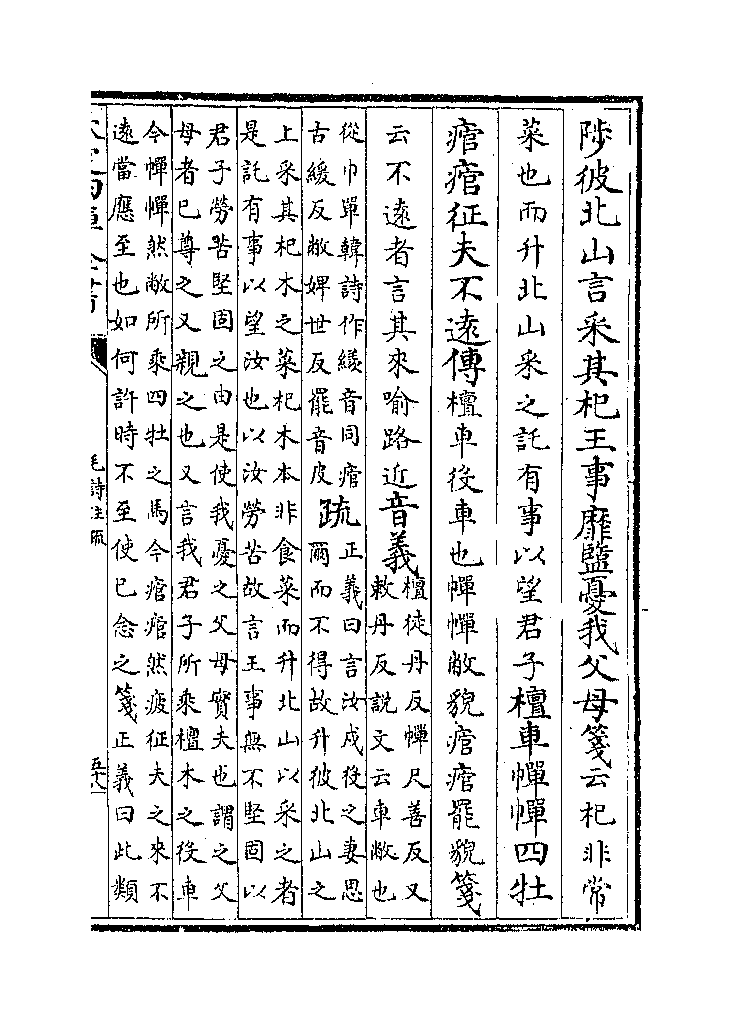 陟彼北山言采其杞王事靡盬憂我父母箋云杞非常
菜也而升北山采之託有事以望君子檀車幝幝四牡
痯痯征夫不遠傳檀車役車也幝幝敝貌痯痯罷貌箋
云不遠者言其來喻路近音義
檀徒丹反幝尺善反又
敕丹反説文云車敝也
從巾單韓詩作音同痯
古緩反敝婢世反罷音皮
疏
正義曰言汝戍役之妻思
爾而不得故升彼北山之
上采其杞木之菜杞木本非食菜而升北山以采之者
是託有事以望汝也以汝勞苦故言王事無不堅固以
君子勞苦堅固之由是使我憂之父母實夫也謂之父
母者已尊之又親之也又言我君子所乘檀木之役車
今幝幝然敝所乘四牡之馬今痯痯然疲征夫之來不
遠當應至也如何許時不至使已念之箋正義曰此類
毛詩注疏
五十八